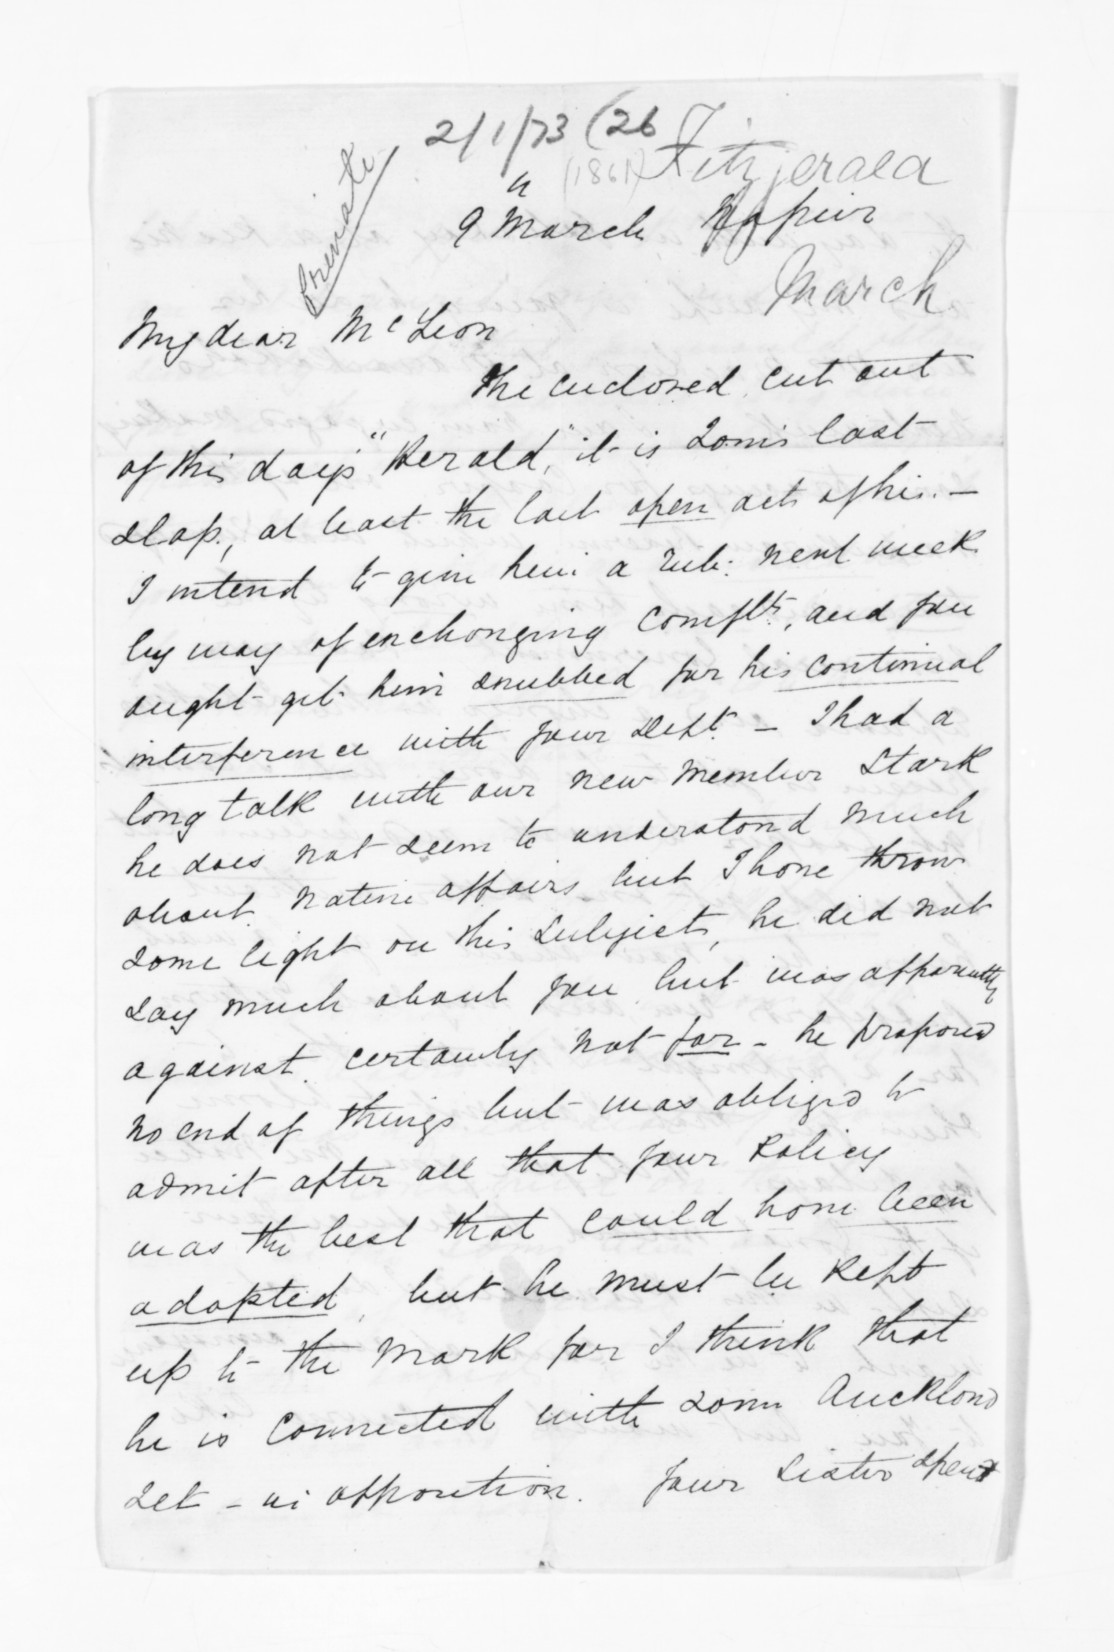 2/1/73 (26
Fitzgerald
(1861)
Private
9th March Napier
March
My dear McLean
The enclosed cut out
of this day's "Herald," it is Tom's last
slap, at least the last open act of his. —
I intend to give him a rub: next week
by way of exchanging complts, and you
ought get him snubbed for his continual
interference with your Dept. — I had a
long talk with our new member Stark
he does not seem to understand much
about Native affairs but I have thrown
some light on this Subject, he did not
say much about you but was apparently
against. certainly not for - he proposed
no end of things but was obliged to
admit after all that your Policy
was the best that could have been
adopted, but he must be kept
up to the mark for I think that
he is connected with some Auckland
set - in opposition. Your Sister spent